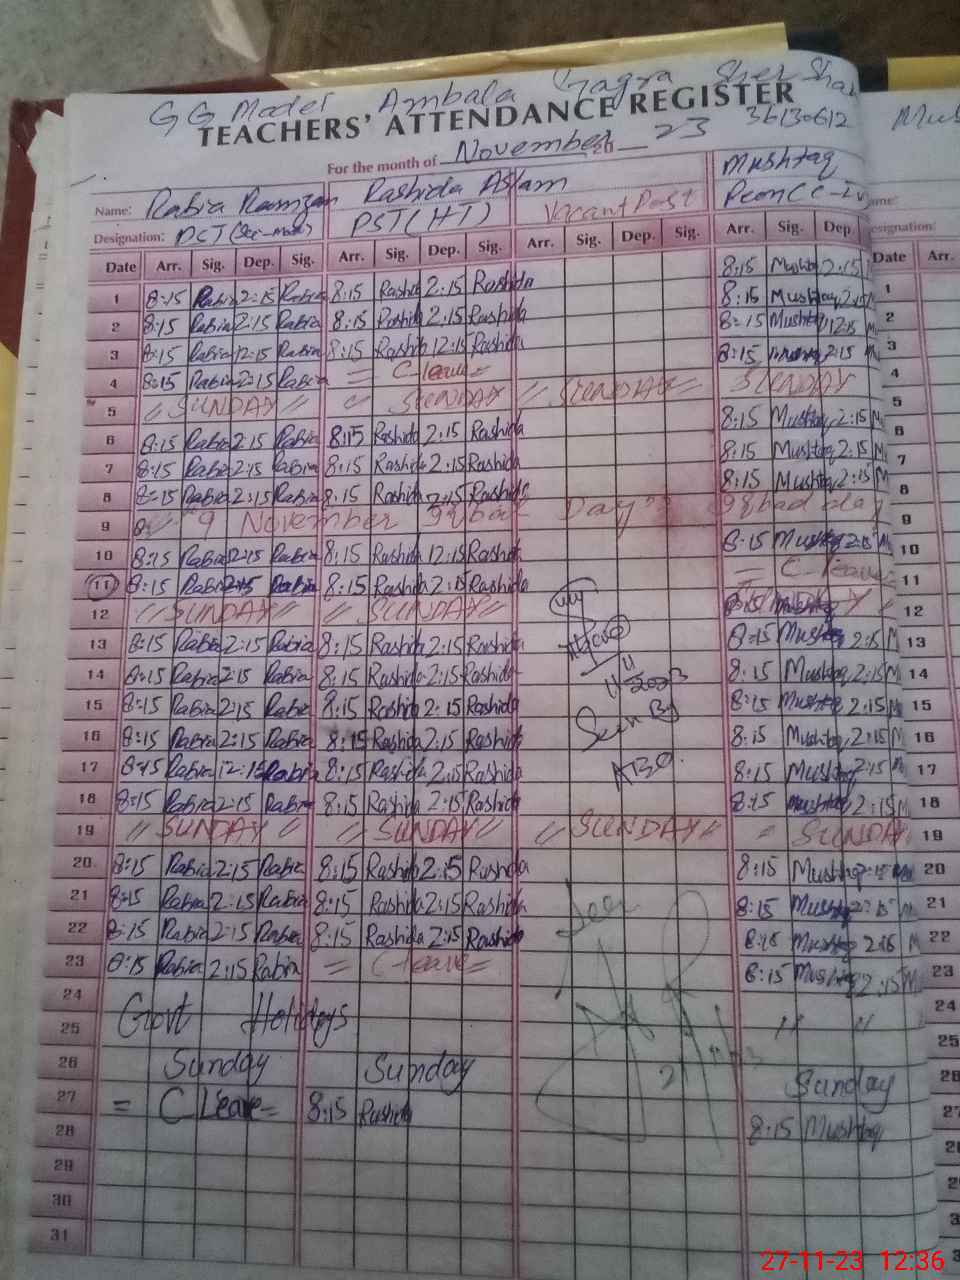 GG Model Ambala Gagra Sher Shah
TEACHERS' ATTENDANCE REGISTER 36130612
For the month of November 20 23
Name: Rabia Ramzan Rashida Aslam Vacant Post Mushtaq
Designation: PST PST (HT)
Date Arr. Sig. Dep. Sig. Arr. Sig. Dep. Sig. Arr. Sig. Dep. Sig. Arr. Sig. Dep Date Arr.
8:15 Mushtaq 2:15
1 8:15 Rabia 2:15 Rabia 8:15 Rashida 2:15 Rashida 8:15 Mushtaq 2:15 1
2 8:15 Rabia 2:15 Rabia 8:15 Rashida 2:15 Rashida 8:15 Mushtaq 12:15 2
3 8:15 Rabia 12:15 Rabia 8:15 Rashida 12:15 Rashida 8:15 2:15 3
4 8:15 Rabia 2:15 Rabia = C-leave = 4
5 // SUNDAY // SUNDAY // SUNDAY = SUNDAY 5
6 8:15 Rabia 2:15 Rabia 8:15 Rashida 2:15 Rashida 8:15 Mushtaq 2:15 6
7 8:15 Rabia 2:15 Rabia 8:15 Rashida 2:15 Rashida 8:15 Mushtaq 2:15 7
8 8:15 Rabia 2:15 Rabia 8:15 Rashida 2:15 Rashida 8:15 Mushtaq 2:15 8
9 9 November Iqbal Day Iqbad day 9
10 8:15 Rabia 2:15 Rabia 8:15 Rashida 12:15 Rashida 8:15 Mushtaq 2:15 10
11 8:15 Rabia 2:15 Rabia 8:15 Rashida 2:15 Rashida = C-leave = 11
12 // SUNDAY // // SUNDAY // 12
13 8:15 Rabia 2:15 Rabia 8:15 Rashida 2:15 Rashida 8:15 Mushtaq 2:15 13
14 8:15 Rabia 2:15 Rabia 8:15 Rashida 2:15 Rashida 11 2023 8:15 Mushtaq 2:15 14
15 8:15 Rabia 2:15 Rabia 8:15 Rashida 2:15 Rashida Seen By 8:15 Mushtaq 2:15 15
16 8:15 Rabia 2:15 Rabia 8:15 Rashida 2:15 Rashida 8:15 Mushtaq 2:15 16
17 8:15 Rabia 12:15 Rabia 8:15 Rashida 2:15 Rashida 8:15 Mushtaq 2:15 17
18 8:15 Rabia 2:15 Rabia 8:15 Rashida 2:15 Rashida 8:15 Mushtaq 2:15 18
19 // SUNDAY // // SUNDAY // // SUNDAY // = SUNDAY 19
20 8:15 Rabia 2:15 Rabia 8:15 Rashida 2:15 Rashida 8:15 Mushtaq 2:15 20
21 8:15 Rabia 2:15 Rabia 8:15 Rashida 2:15 Rashida Seen 8:15 Mushtaq 2:15 21
22 8:15 Rabia 2:15 Rabia 8:15 Rashida 2:15 Rashida 8:15 Mushtaq 2:15 22
23 8:15 Rabia 2:15 Rabia = C-leave = 8:15 Mushtaq 2:15 23
24 24
25 Govt Holidays // // 25
26 Sunday Sunday Sunday 26
27 = C Leave = 8:15 Rashida 8:15 Mushtaq 27
28 28
29
30
31
27-11-23 12:36